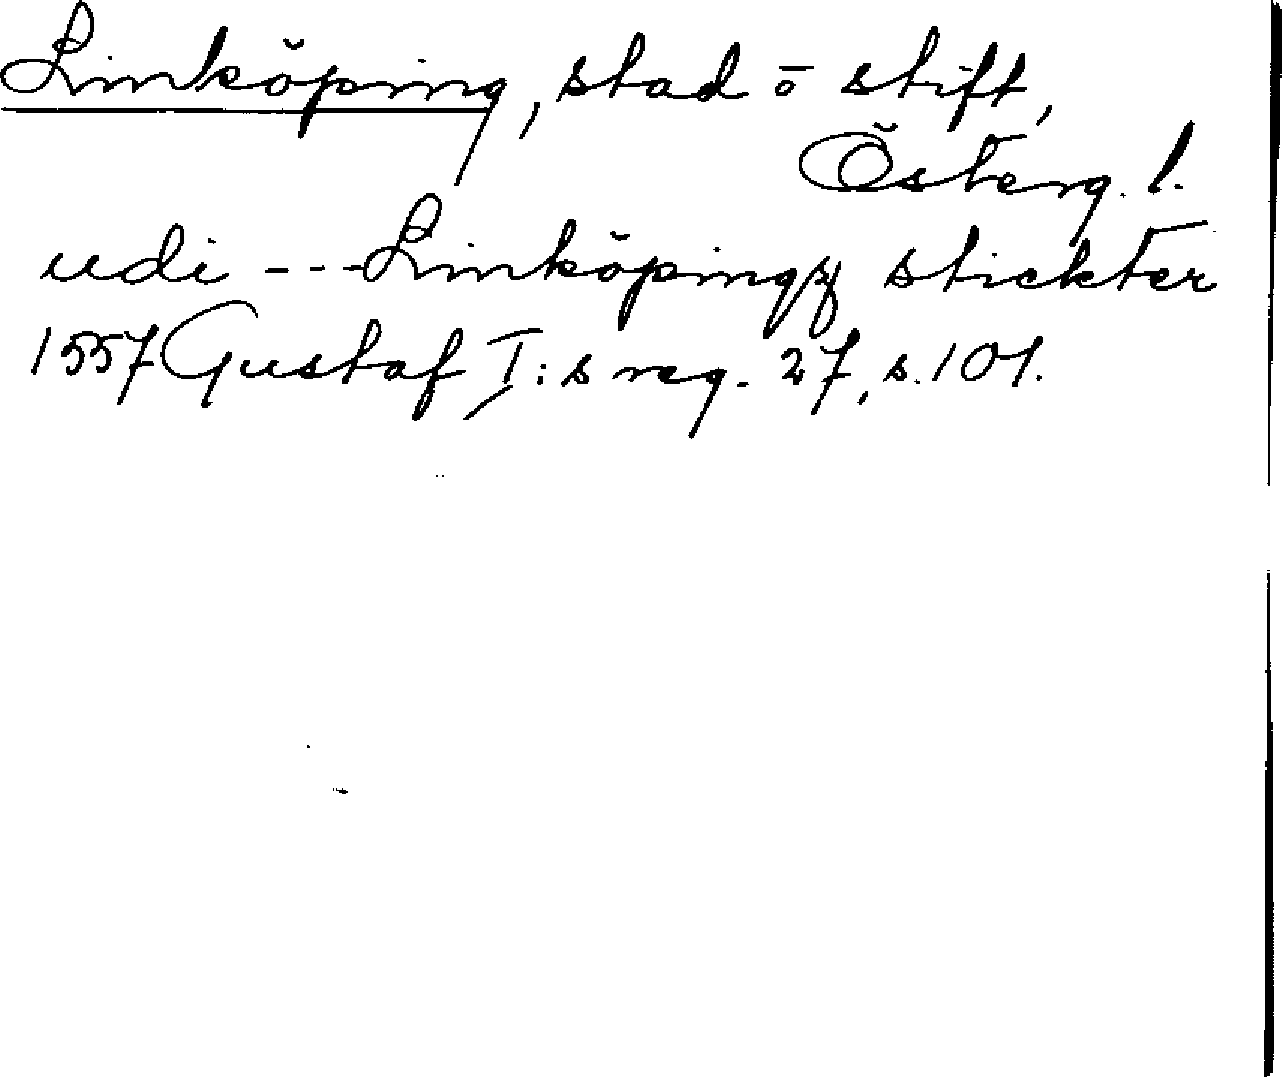 Linköping, stad o stift,
Österg. l.
udi --- Linköpingz stickter
1557 Gustaf I:s reg. 27, s. 101.